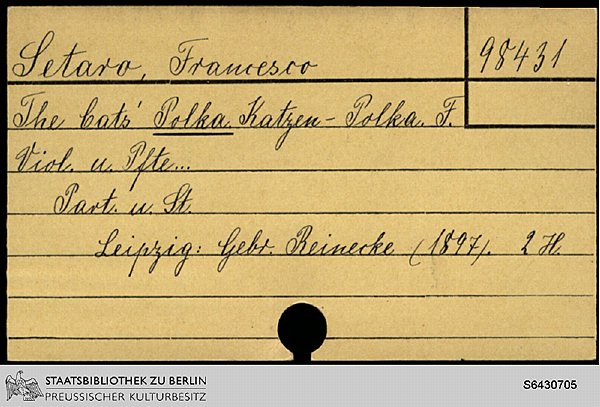 Setaro, Francesco
98431
The Cats' Polka. Katzen-Polka. F.
Viol. u. Pfte...
Part. u. St.
Leipzig: Gebr. Reinecke (1897). 2 H.
STAATSBIBLIOTHEK ZU BERLIN
PREUSSISCHER KULTURBESITZ
S6430705